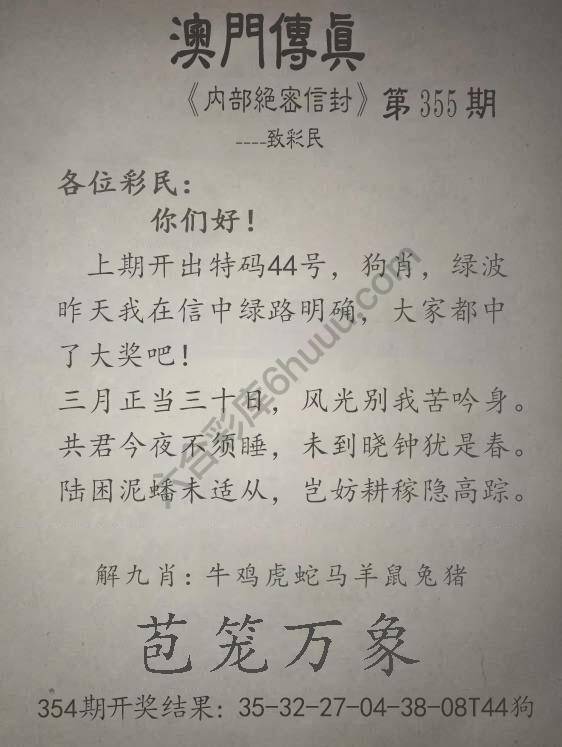 澳門傳眞
《内部絕密信封》第355期
----致彩民
各位彩民：
你们好！
上期开出特码44号，狗肖，绿波
昨天我在信中绿路明确，大家都中
了大奖吧！
三月正当三十日，风光别我苦吟身。
共君今夜不须睡，未到晓钟犹是春。
陆困泥蟠未适从，岂妨耕稼隐高踪。
解九肖：牛鸡虎蛇马羊鼠兔猪
苞笼万象
354期开奖结果：35-32-27-04-38-08T44狗
六合彩库6huuu.com